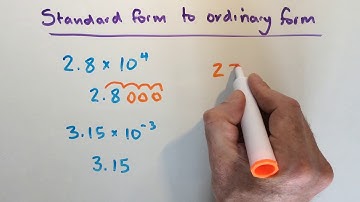 Standard form to ordinary form
2.8 × 10⁴
2.8000
3.15 × 10⁻³
3.15
27